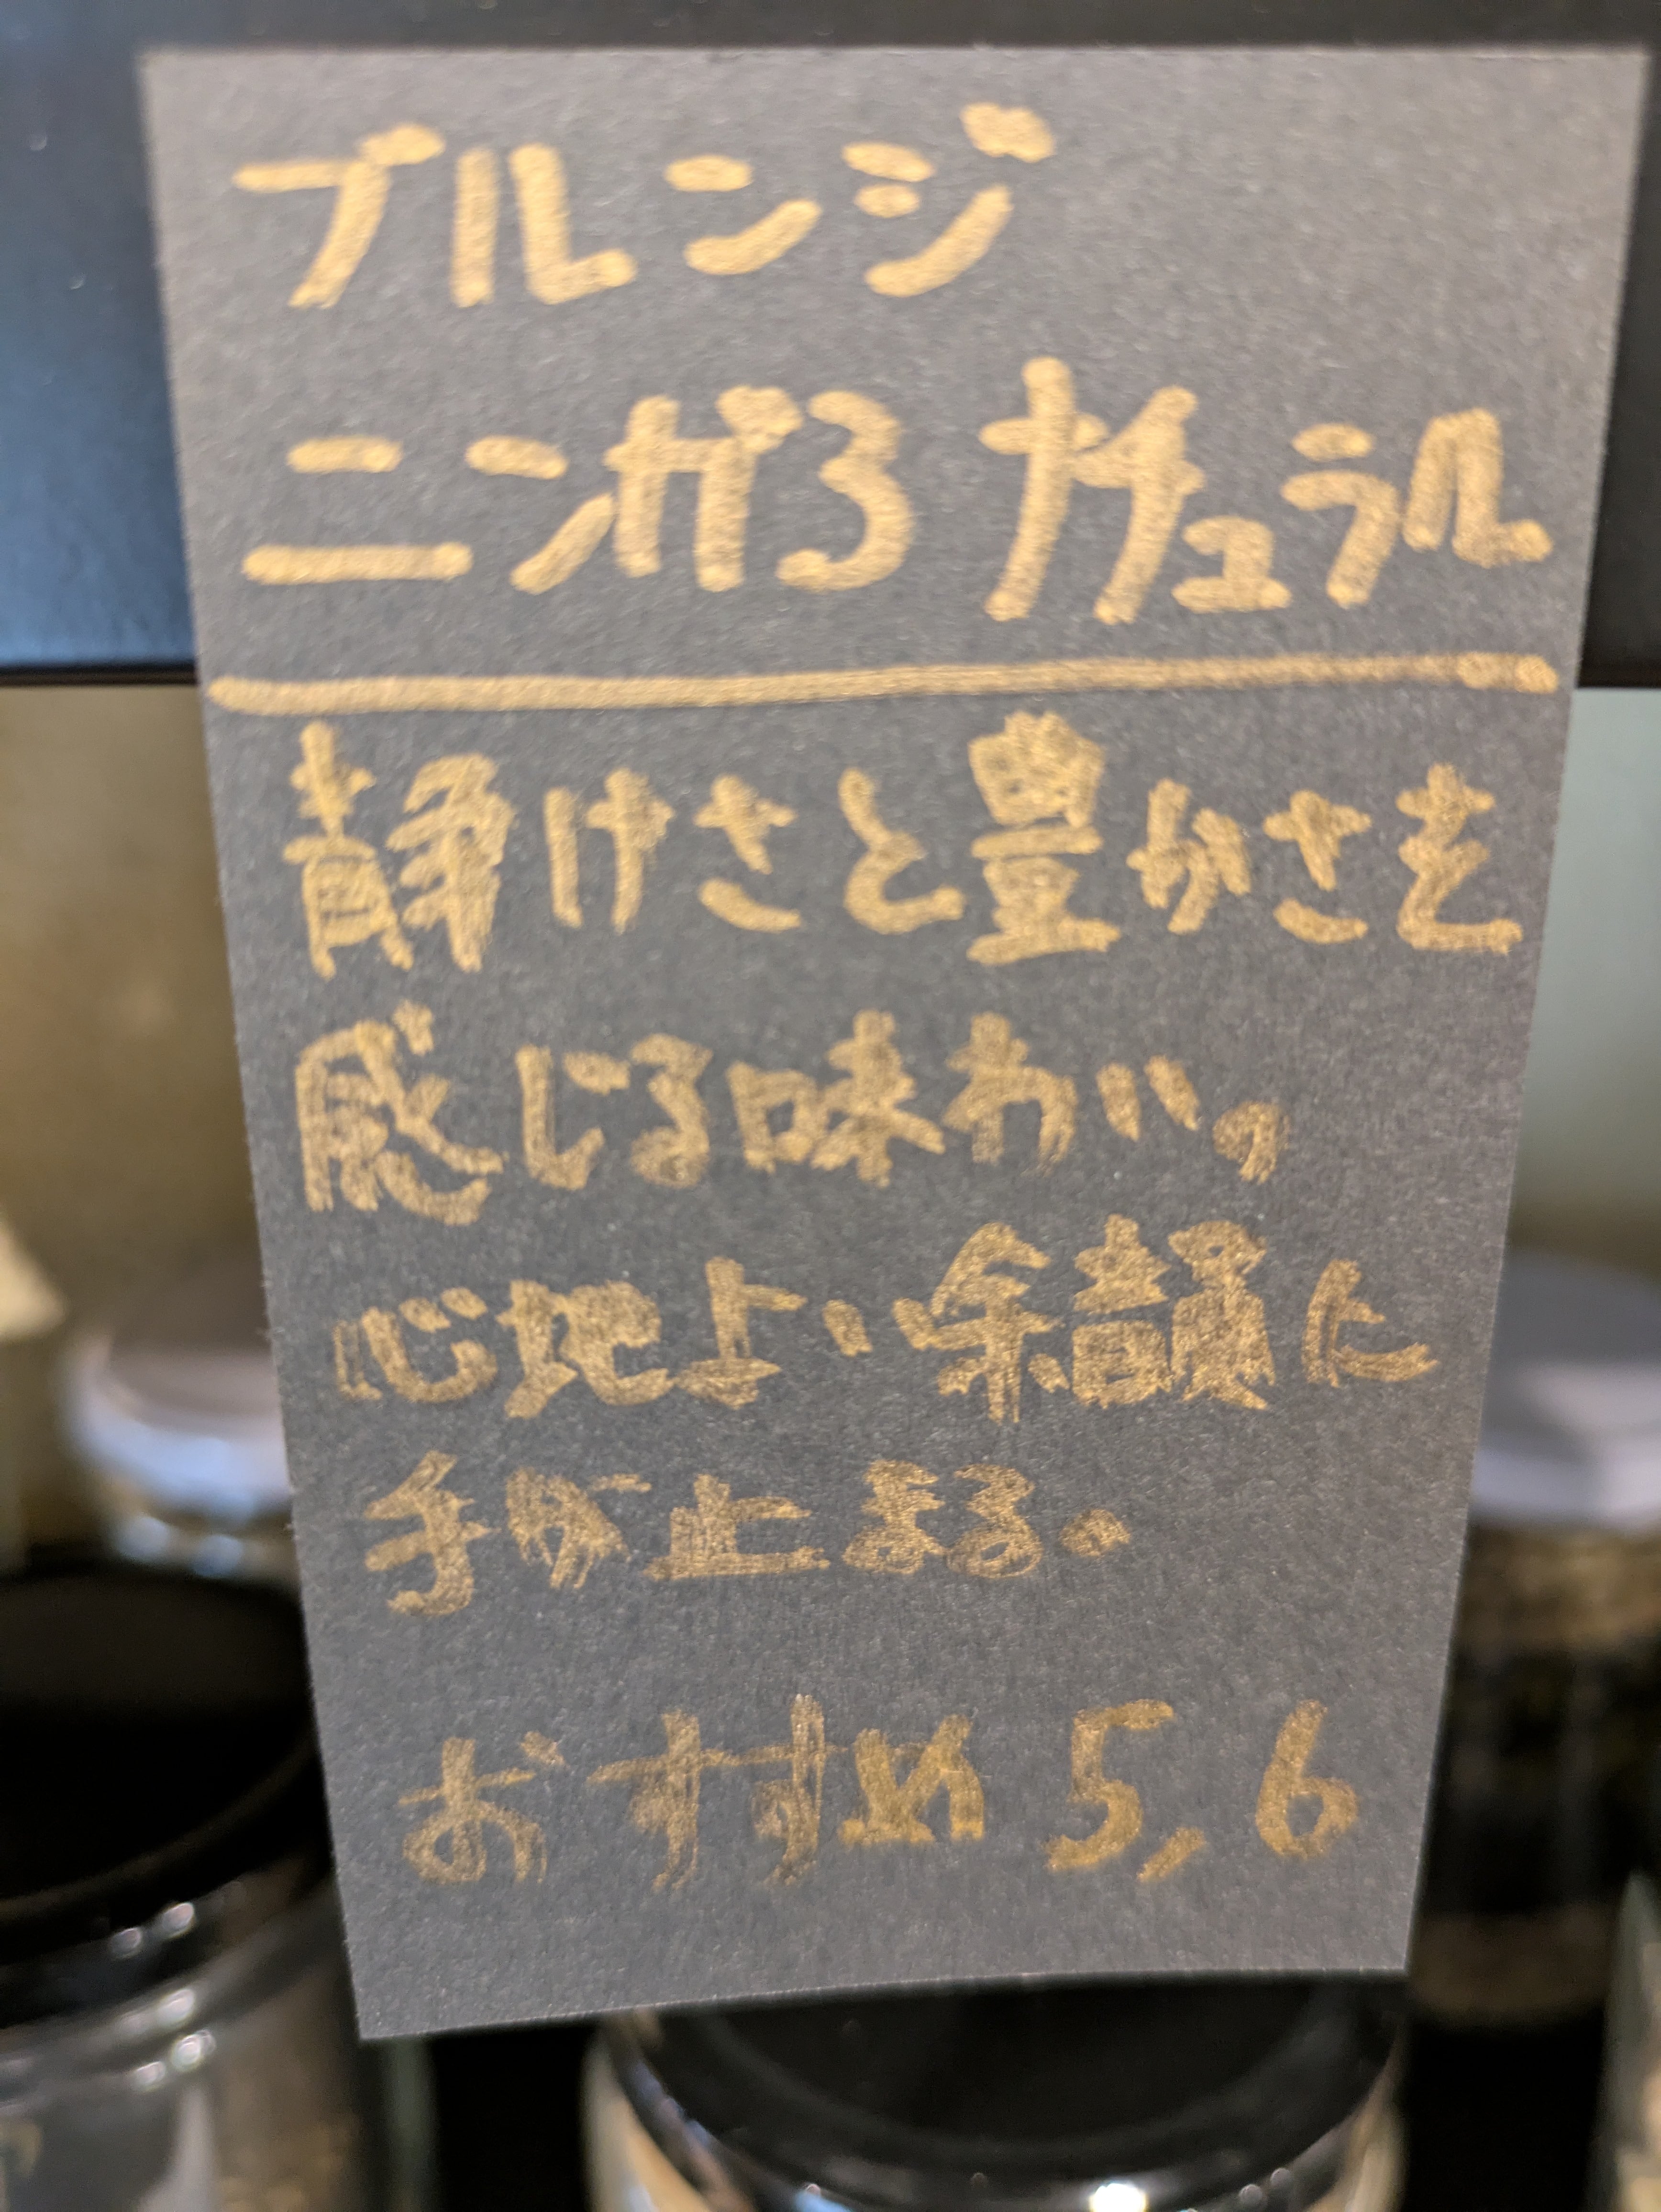 ブルンジ
ニンガろ ナチュラル
静けさと豊かさを
感じる味わい。
心地よい余韻に
手が止まる。
おすすめ 5,6